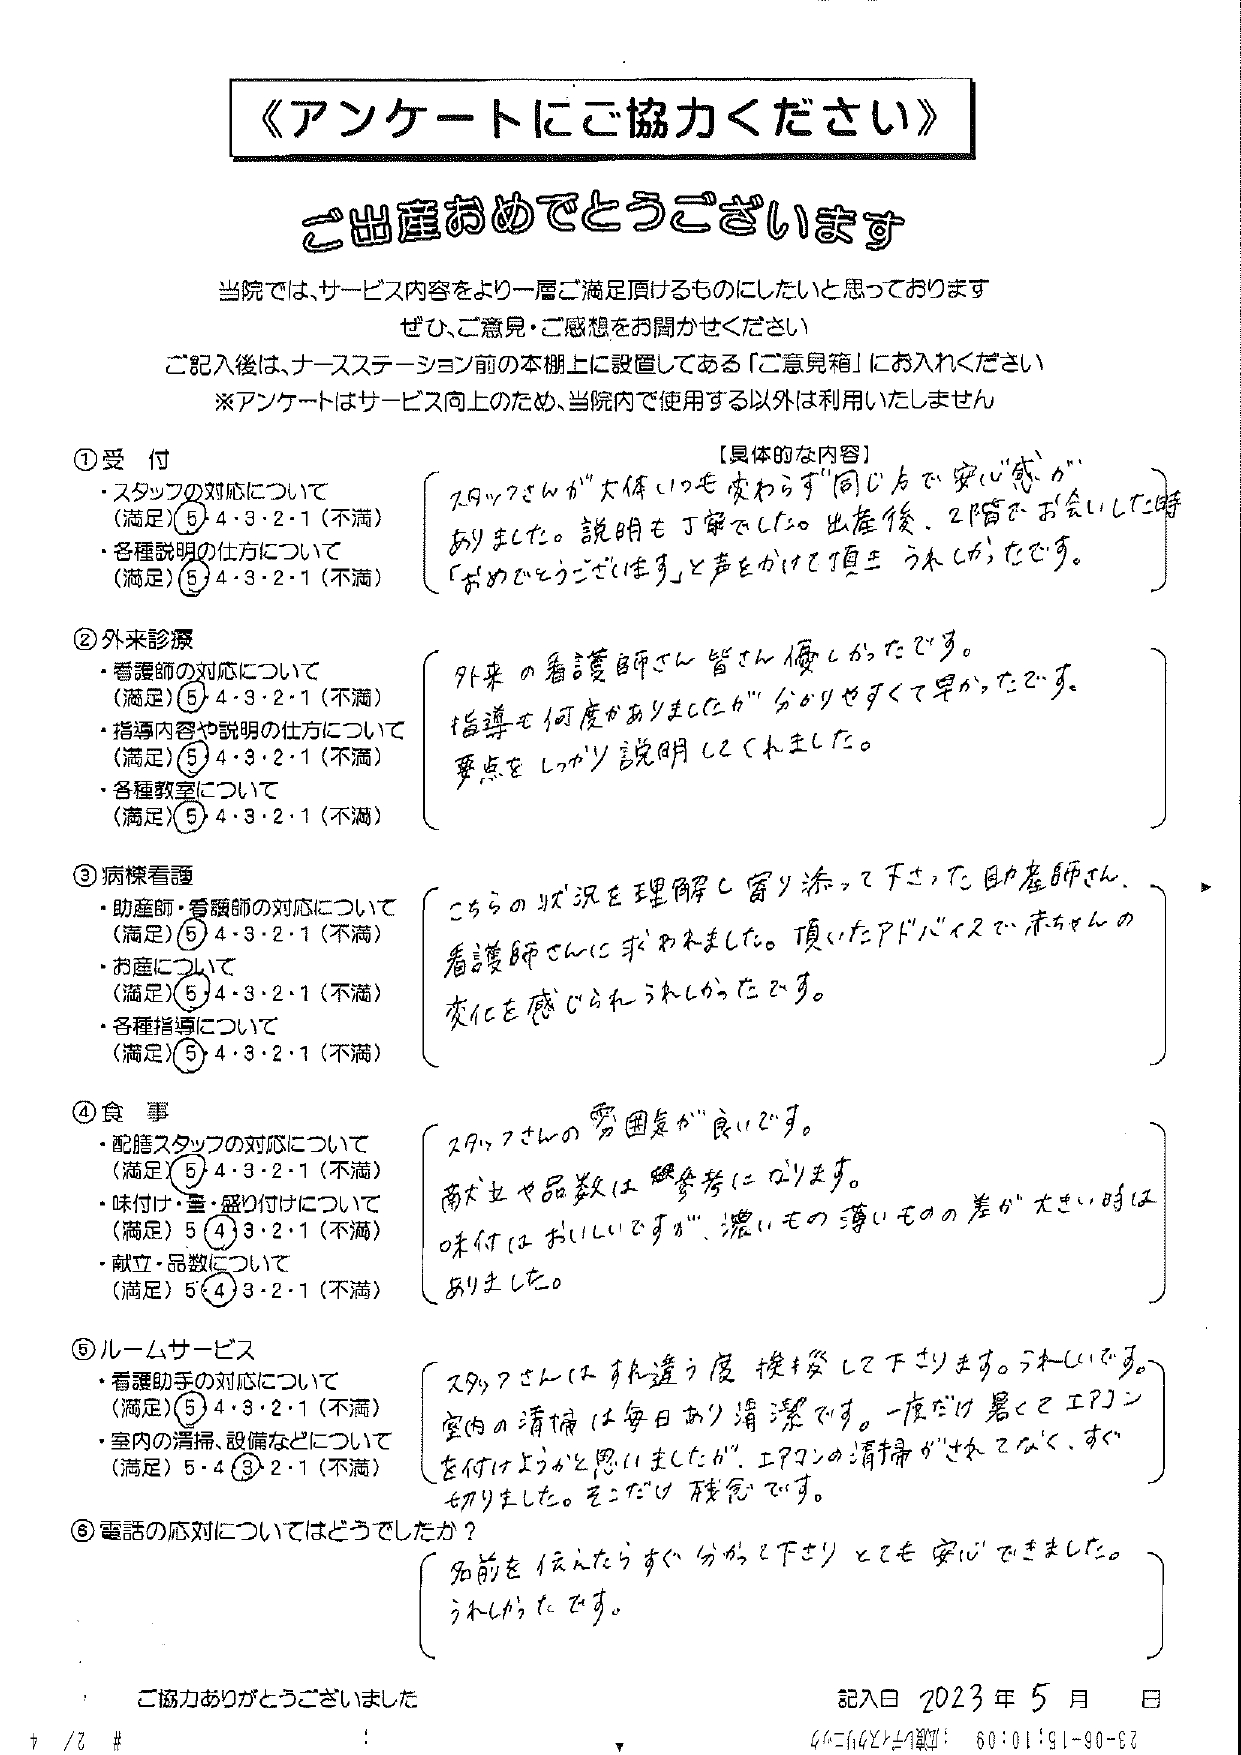 《アンケートにご協力ください》
ご出産おめでとうございます
当院では、サービス内容をより一層ご満足頂けるものにしたいと思っております
ぜひ、ご意見・ご感想をお聞かせください
ご記入後は、ナースステーション前の本棚上に設置してある「ご意見箱」にお入れください
※アンケートはサービス向上のため、当院内で使用する以外は利用いたしません
①受　付
【具体的な内容】
・スタッフの対応について
(満足) 5・4・3・2・1 (不満)
・各種説明の仕方について
(満足) 5・4・3・2・1 (不満)
スタッフさんが大体いつも変わらず同じ方で安心感が
ありました。説明も丁寧でした。出産後、2階でお会いした時
「おめでとうございます」と声をかけて頂き うれしかったです。
②外来診療
・看護師の対応について
(満足) 5・4・3・2・1 (不満)
・指導内容や説明の仕方について
(満足) 5・4・3・2・1 (不満)
・各種教室について
(満足) 5・4・3・2・1 (不満)
外来の看護師さん皆さん優しかったです。
指導も何度かありましたが分かりやすくて早かったです。
要点をしっかり説明してくれました。
③病棟看護
・助産師・看護師の対応について
(満足) 5・4・3・2・1 (不満)
・お産について
(満足) 5・4・3・2・1 (不満)
・各種指導について
(満足) 5・4・3・2・1 (不満)
こちらの状況を理解し寄り添って下さった助産師さん、
看護師さんに救われました。頂いたアドバイスで赤ちゃんの
変化を感じられうれしかったです。
④食　事
・配膳スタッフの対応について
(満足) 5・4・3・2・1 (不満)
・味付け・量・盛り付けについて
(満足) 5・4・3・2・1 (不満)
・献立・品数について
(満足) 5・4・3・2・1 (不満)
スタッフさんの雰囲気が良いです。
献立や品数は参考になります。
味付はおいしいですが、濃いもの薄いものの差が大きい時は
ありました。
⑤ルームサービス
・看護助手の対応について
(満足) 5・4・3・2・1 (不満)
・室内の清掃、設備などについて
(満足) 5・4・3・2・1 (不満)
スタッフさんはすれ違う度挨拶して下さります。うれしいです。
室内の清掃は毎日あり清潔です。一度だけ暑くてエアコン
を付けようかと思いましたが、エアコンの清掃がされてなく、すぐ
切りました。そこだけ残念です。
⑥電話の応対についてはどうでしたか？
名前を伝えたらすぐ分かって下さりとても安心できました。
うれしかったです。
ご協力ありがとうございました
記入日 2023 年 5 月　　日
23-06-15;10:09 ;広瀬レディスクリニック
# 2/ 4